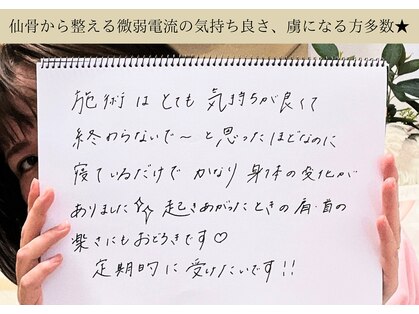 仙骨から整える微弱電流の気持ち良さ、虜になる方多数★
施術はとても気持ちが良くて
終わらないで〜と思ったほどなのに
寝ているだけでかなり身体の変化が
ありました✨起きあがったときの肩・首の
楽さにもおどろきです♡
定期的に受けたいです!!